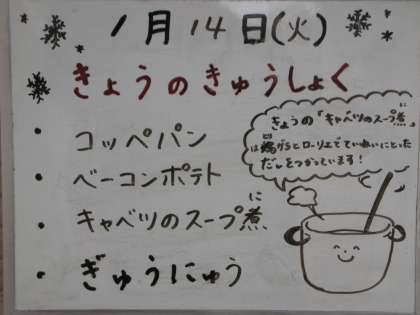 1月14日(火)
きょうのきゅうしょく
・コッペパン
・ベーコンポテト
・キャベツのスープ煮
に
・ぎゅうにゅう
きょうの「キャベツのスープ煮」
に
は鶏ガラとローリエでていねいにとった
とり
だしをつかっています!